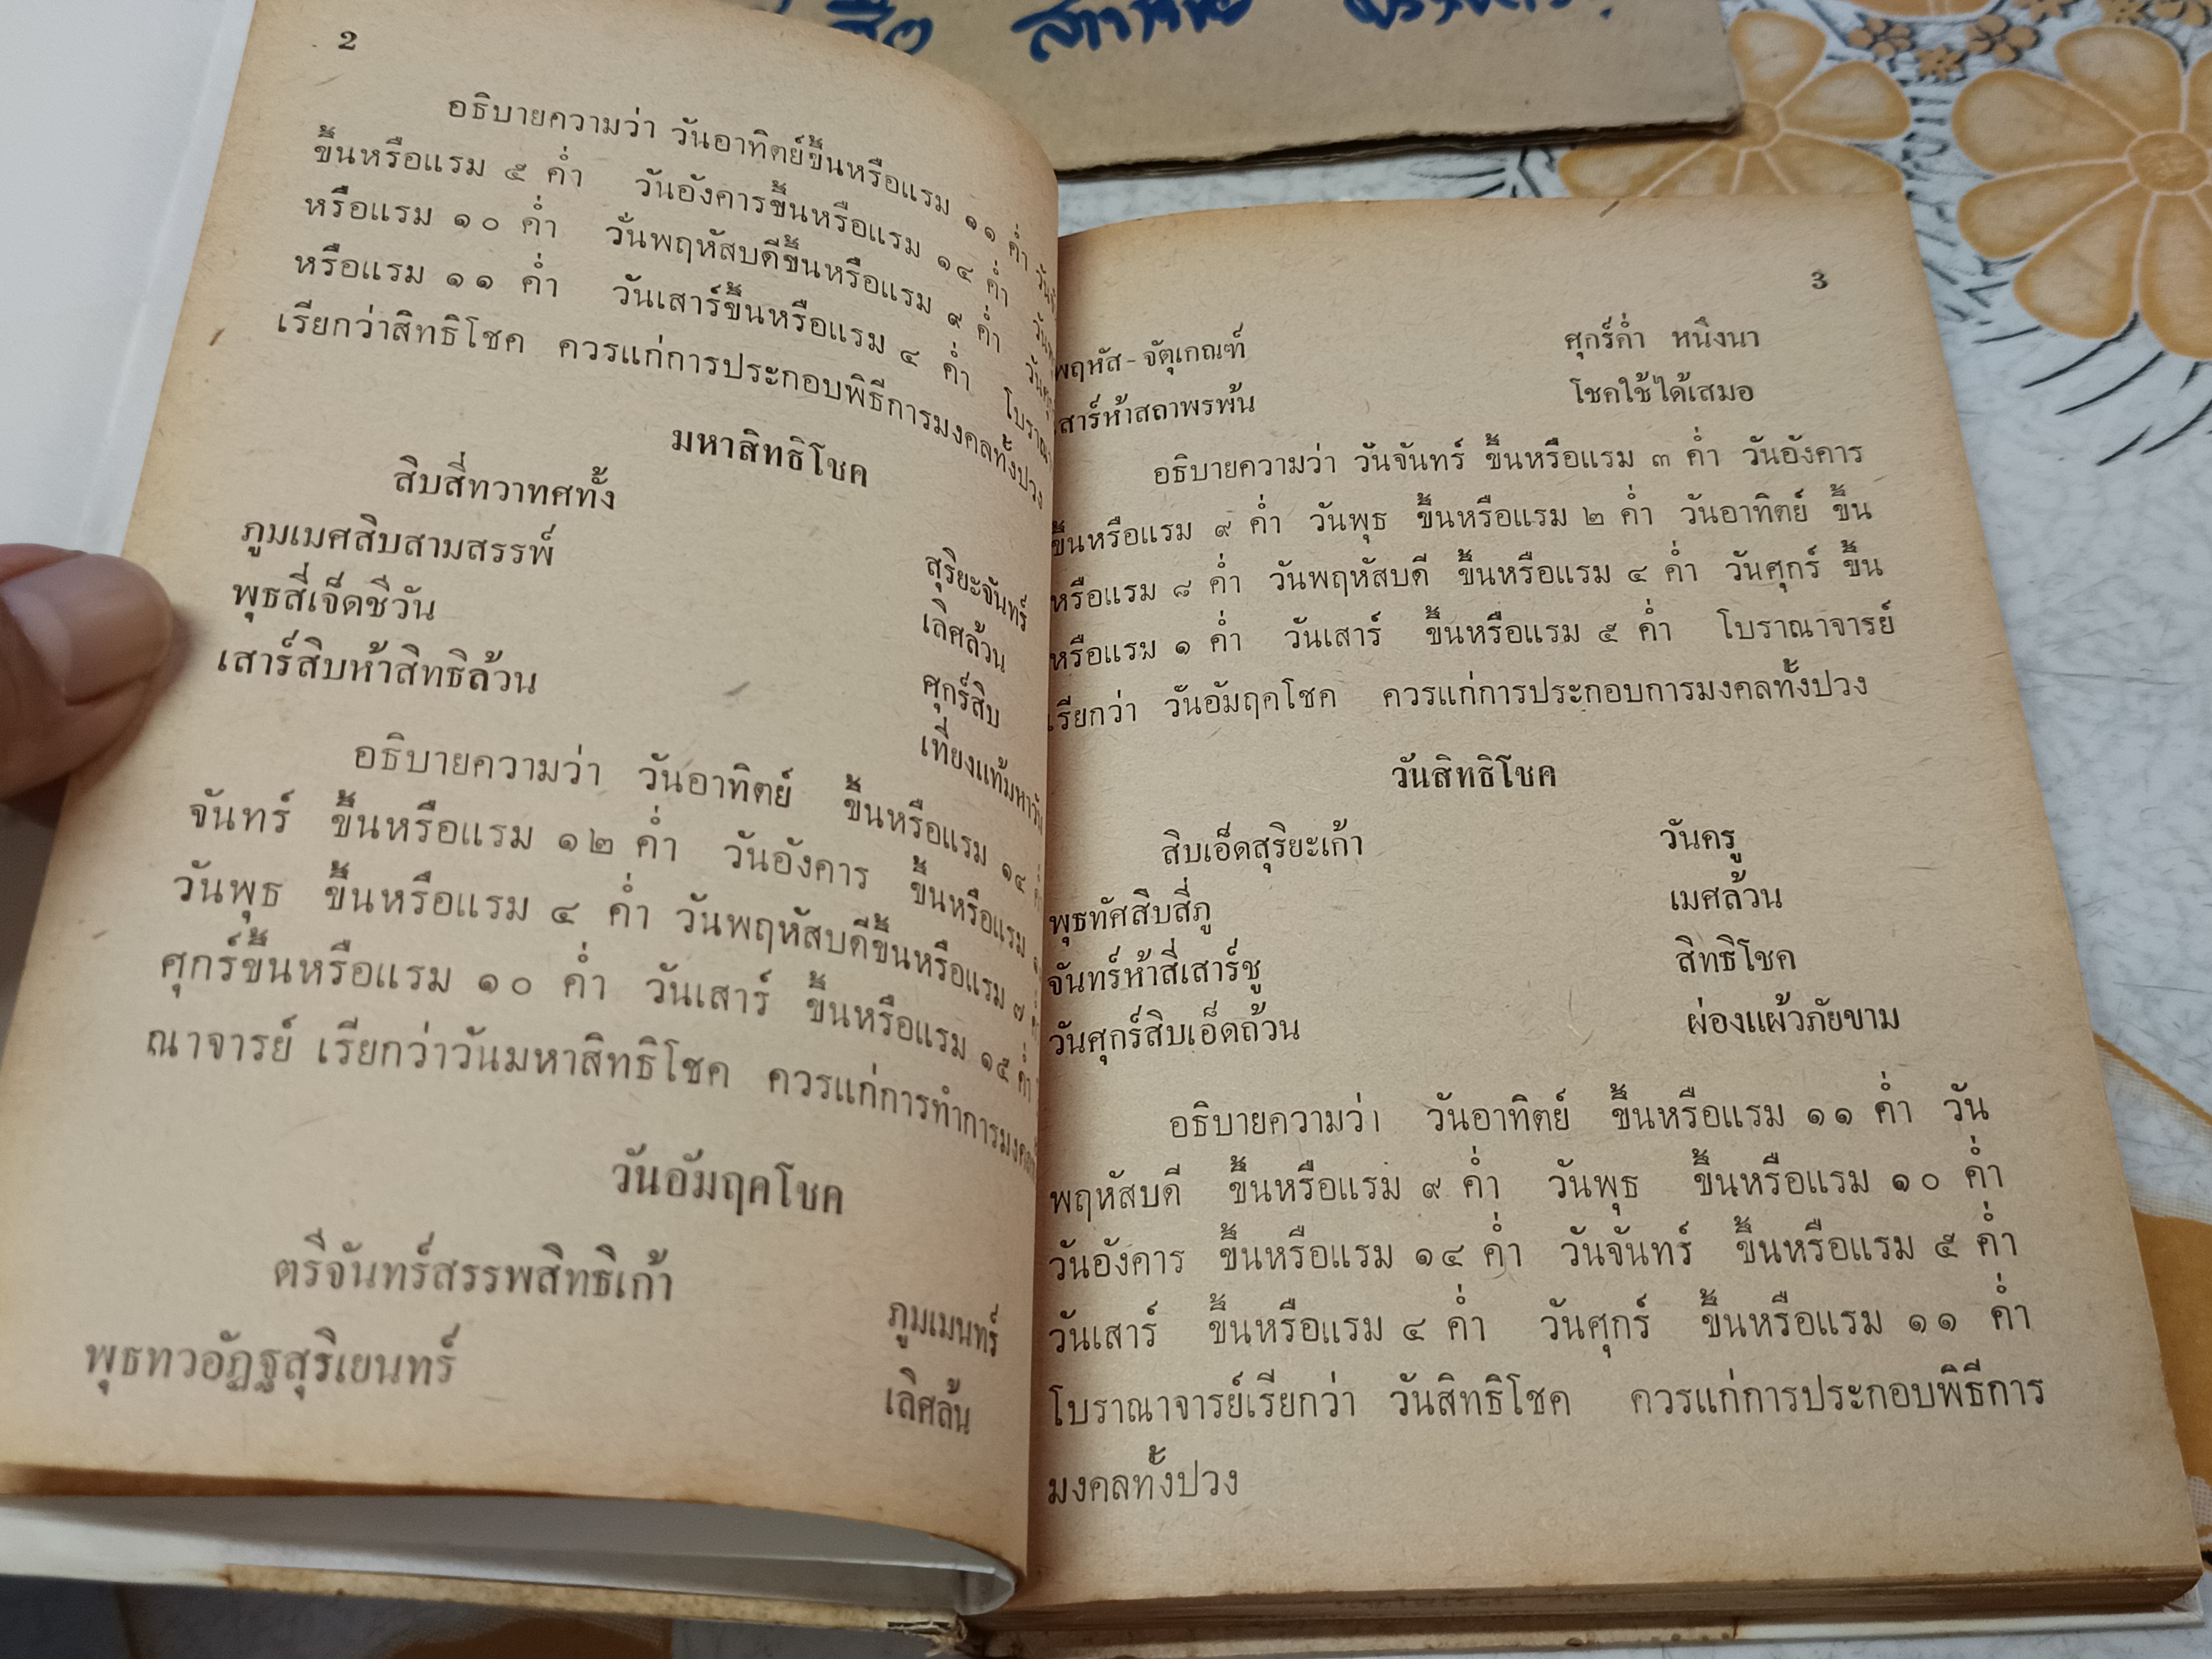 2
อธิบายความว่า วันอาทิตย์ขึ้นหรือแรม ๑๑ ค่ำ
ขึ้นหรือแรม ๕ ค่ำ วันอังคารขึ้นหรือแรม ๑๔ ค่ำ
หรือแรม ๑๐ ค่ำ วันพฤหัสบดีขึ้นหรือแรม ๙ ค่ำ
หรือแรม ๑๑ ค่ำ วันเสาร์ขึ้นหรือแรม ๔ ค่ำ
เรียกว่าสิทธิโชค ควรแก่การประกอบพิธีการมงคลทั้งปวง
มหาสิทธิโชค
สิบสี่ทวาทศทั้ง สุริยะจันทร์
ภูมเมศสิบสามสรรพ์ เลิศล้วน
พุธสี่เจ็ดชีวัน ศุกร์สิบ
เสาร์สิบห้าสิทธิล้วน เที่ยงแท้มหาวัน
อธิบายความว่า วันอาทิตย์ ขึ้นหรือแรม ๑๔
จันทร์ ขึ้นหรือแรม ๑๒ ค่ำ วันอังคาร ขึ้นหรือแรม
วันพุธ ขึ้นหรือแรม ๔ ค่ำ วันพฤหัสบดีขึ้นหรือแรม ๗
ศุกร์ขึ้นหรือแรม ๑๐ ค่ำ วันเสาร์ ขึ้นหรือแรม ๑๕ ค่ำ
ณาจารย์ เรียกว่าวันมหาสิทธิโชค ควรแก่การทำการมงคล
วันอัมฤคโชค
ตรีจันทร์สรรพสิทธิเก้า ภูมเมนทร์
พุธทวอัฏฐสุริเยนทร์ เลิศล้น
3
พฤหัส-จัตุเกณฑ์ ศุกร์ค่ำ หนึ่งนา
เสาร์ห้าสถาพรพ้น โชคใช้ได้เสมอ
อธิบายความว่า วันจันทร์ ขึ้นหรือแรม ๓ ค่ำ วันอังคาร
ขึ้นหรือแรม ๙ ค่ำ วันพุธ ขึ้นหรือแรม ๒ ค่ำ วันอาทิตย์ ขึ้น
หรือแรม ๘ ค่ำ วันพฤหัสบดี ขึ้นหรือแรม ๔ ค่ำ วันศุกร์ ขึ้น
หรือแรม ๑ ค่ำ วันเสาร์ ขึ้นหรือแรม ๕ ค่ำ โบราณาจารย์
เรียกว่า วันอัมฤคโชค ควรแก่การประกอบการมงคลทั้งปวง
วันสิทธิโชค
สิบเอ็ดสุริยะเก้า วันครู
พุธทัศสิบสี่ภู เมศล้วน
จันทร์ห้าสี่เสาร์ชู สิทธิโชค
วันศุกร์สิบเอ็ดถ้วน ผ่องแผ้วภัยขาม
อธิบายความว่า วันอาทิตย์ ขึ้นหรือแรม ๑๑ ค่ำ วัน
พฤหัสบดี ขึ้นหรือแรม ๙ ค่ำ วันพุธ ขึ้นหรือแรม ๑๐ ค่ำ
วันอังคาร ขึ้นหรือแรม ๑๔ ค่ำ วันจันทร์ ขึ้นหรือแรม ๕ ค่ำ
วันเสาร์ ขึ้นหรือแรม ๔ ค่ำ วันศุกร์ ขึ้นหรือแรม ๑๑ ค่ำ
โบราณาจารย์เรียกว่า วันสิทธิโชค ควรแก่การประกอบพิธีการ
มงคลทั้งปวง